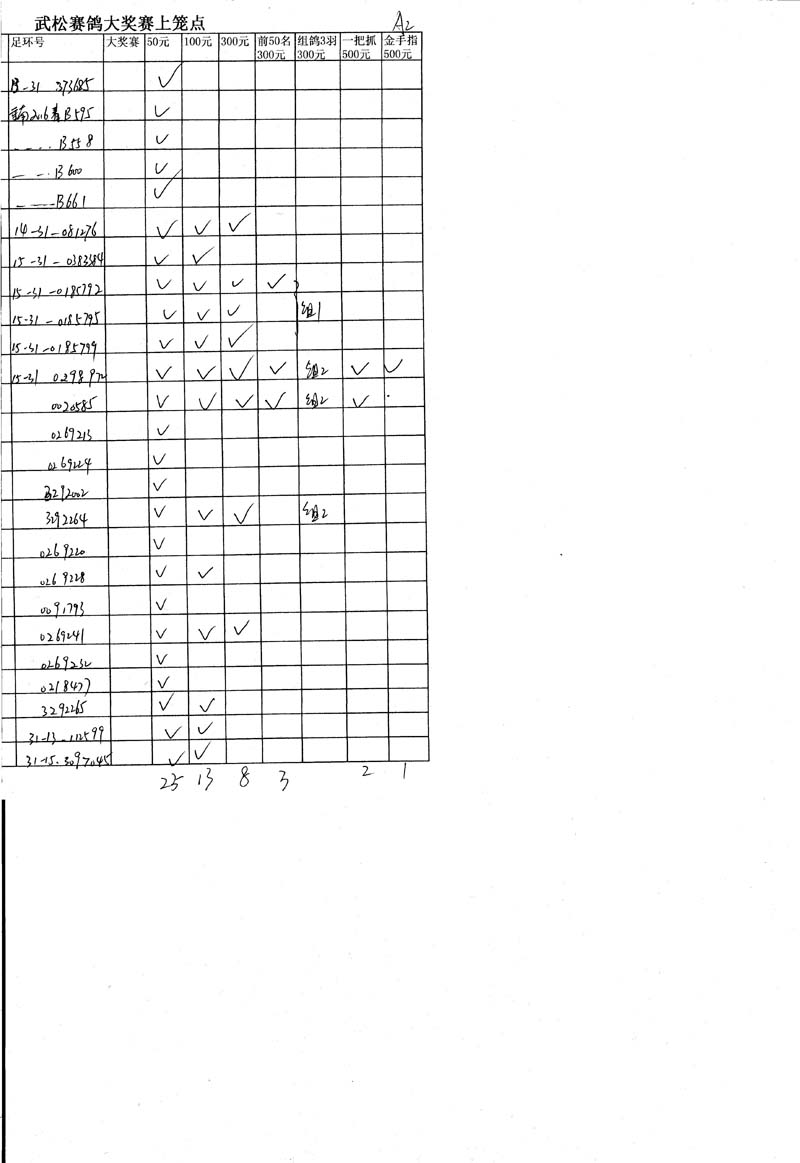 武松赛鸽大奖赛上笼点 A2
足环号 大奖赛 50元 100元 300元 前50名300元 组鸽3羽300元 一把抓500元 金手指500元
B-31 373685 ✓
2016 B595 ✓
-- -- B558 ✓
-- -- B600 ✓
-- -- B661 ✓
14-31-081276 ✓ ✓ ✓
15-31-0383384 ✓ ✓
15-31-0185792 ✓ ✓ ✓ ✓
15-31-0185795 ✓ ✓ ✓ 组1
15-31-0185799 ✓ ✓ ✓
15-31 0298972 ✓ ✓ ✓ ✓ 组2 ✓ ✓
0020585 ✓ ✓ ✓ ✓ 组2 ✓
0269213 ✓
0269224 ✓
3292002 ✓
3292264 ✓ ✓ ✓ 组2
0269220 ✓
0269228 ✓ ✓
0091793 ✓
0269241 ✓ ✓ ✓
0269232 ✓
0218477 ✓
3292265 ✓ ✓
31-13-112599 ✓ ✓
31-15-3097045 ✓ ✓
25 13 8 3 2 1